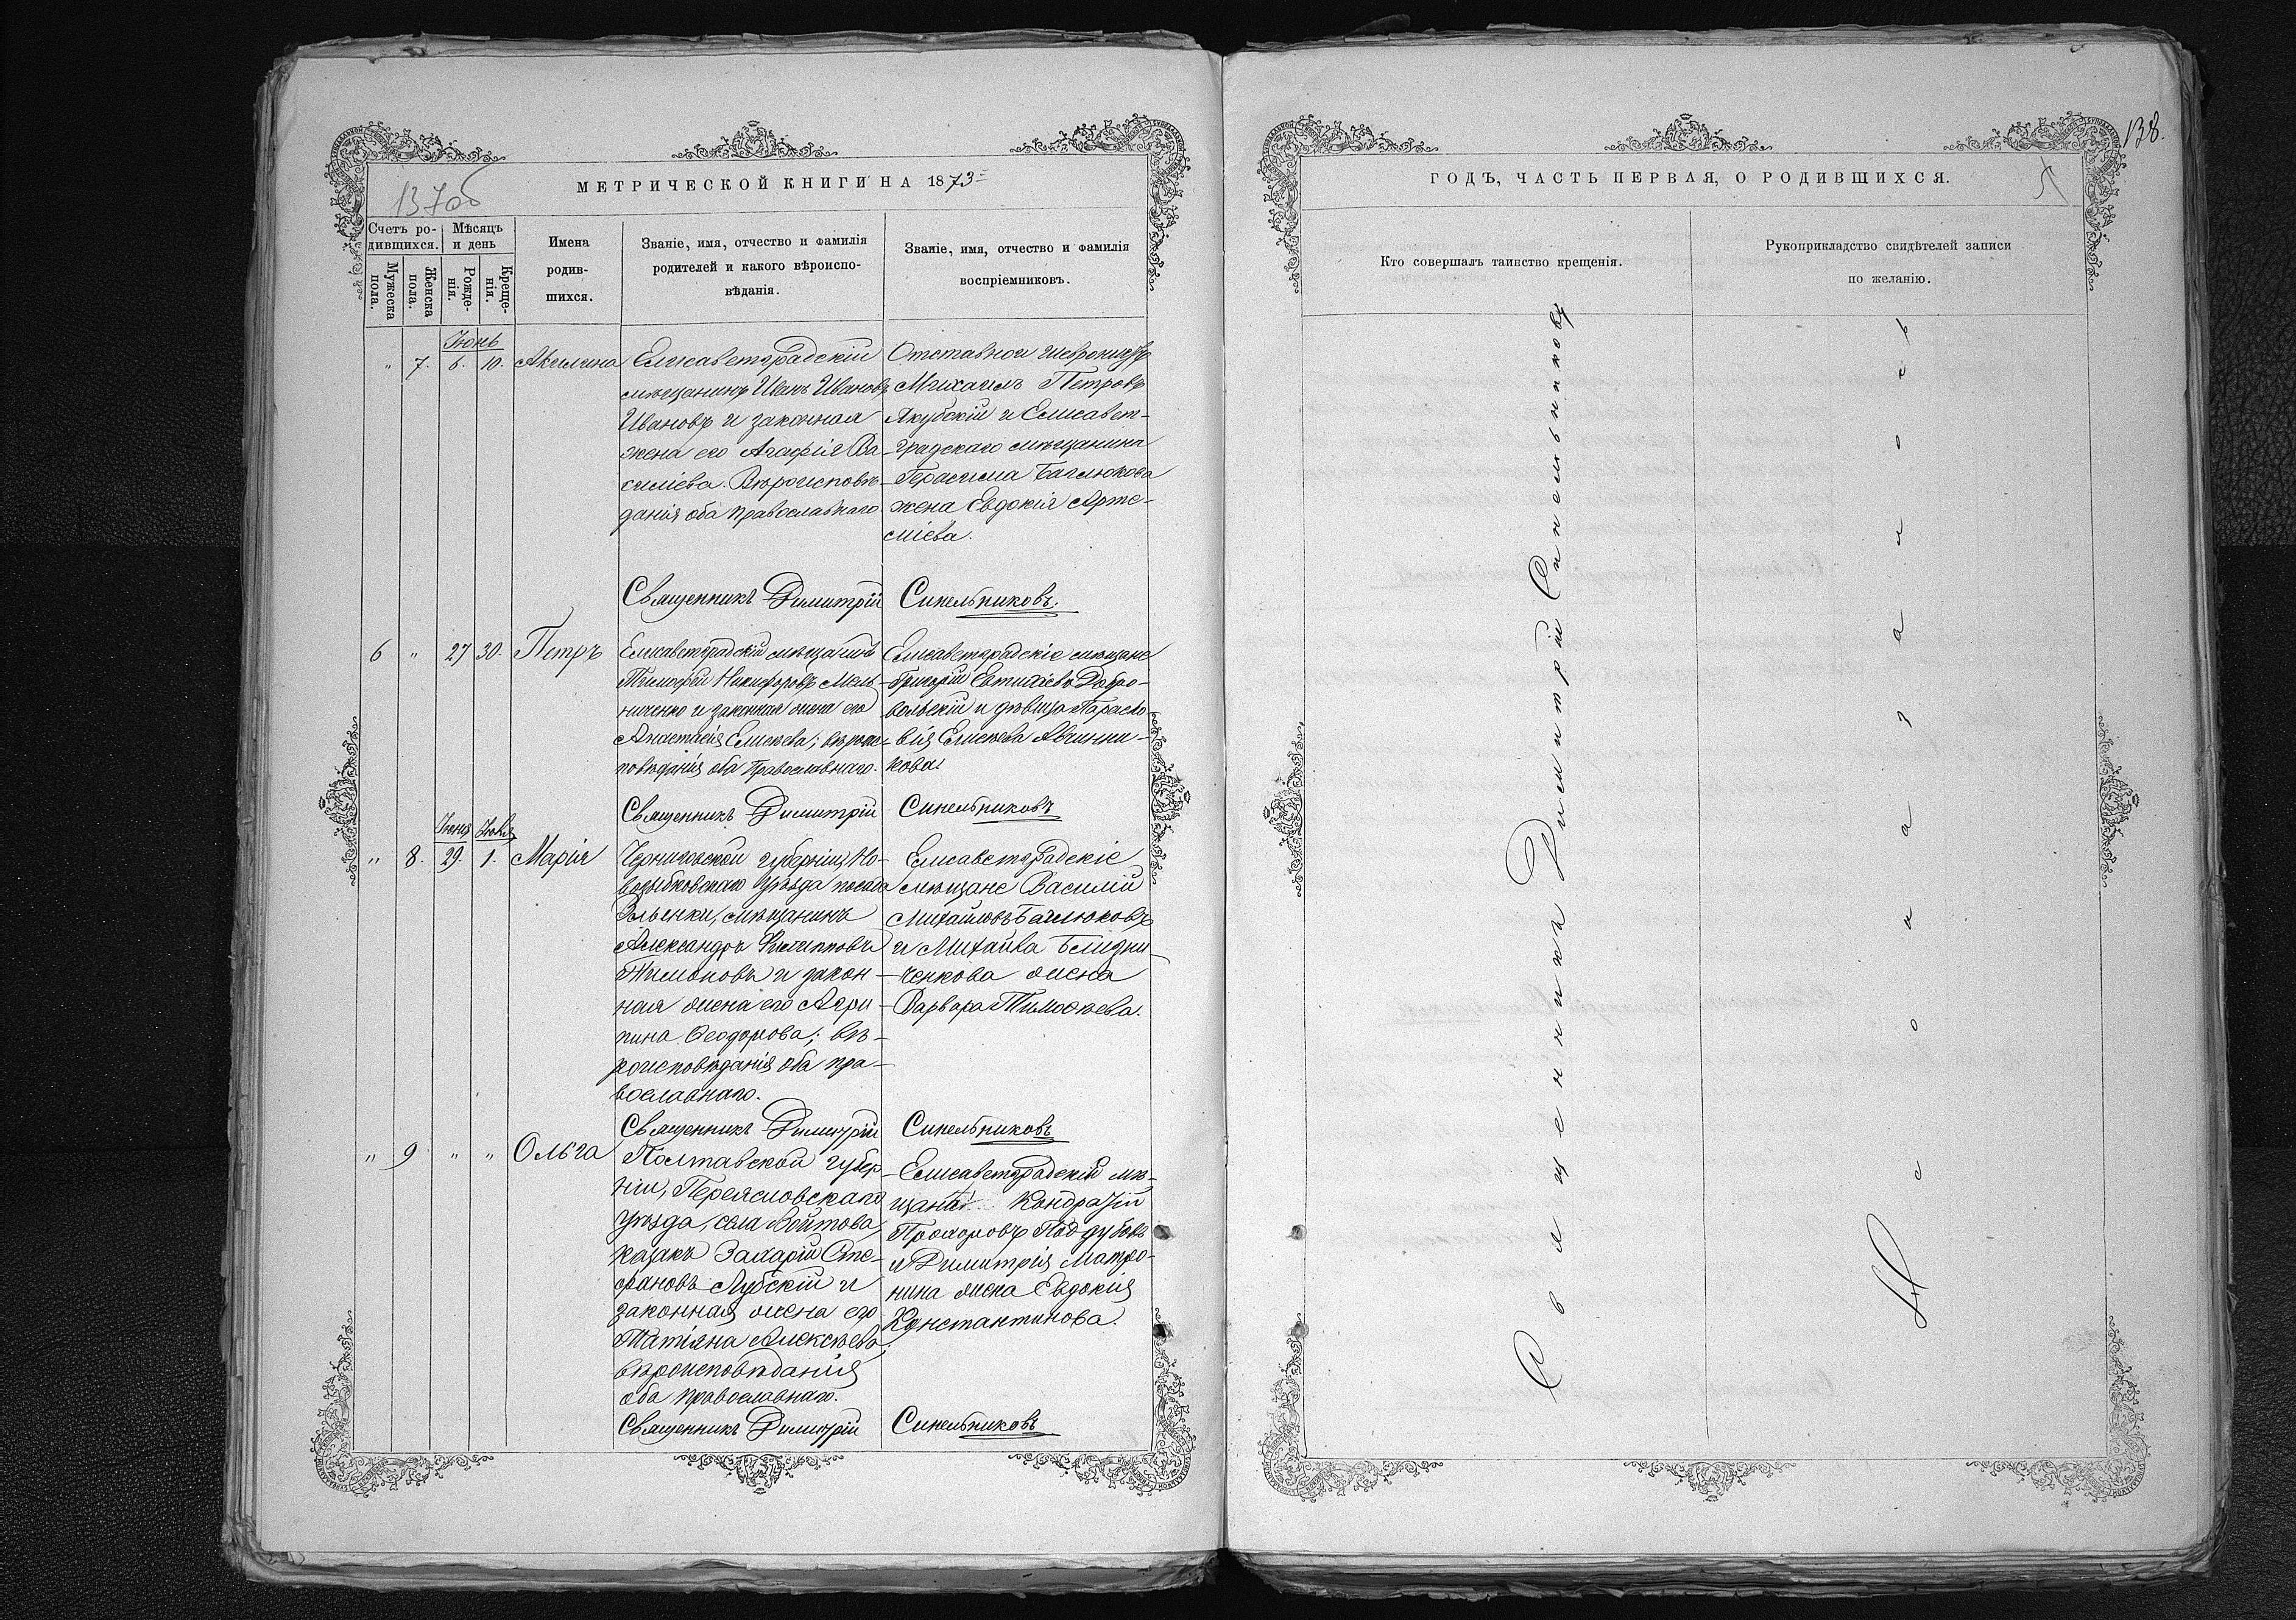 137об
МЕТРИЧЕСКОЙ КНИГИ НА 1873
Счетъ ро-
дившихся.
Мѣсяцъ
и день
Мужеска
пола.
Женска
пола.
Рожде-
нія.
Креще-
нія.
Имена
родив-
шихся.
Званіе, имя, отчество и фамилія
родителей и какого вѣроиспо-
вѣданія.
Званіе, имя, отчество и фамилія
воспріемниковъ.
Іюнь
" 7. 6. 10. Акилина
Елисаветградскій
мѣщанинъ Иванъ Ивановъ
Ивановъ и законная
жена его Агафія Ва-
силіева. Вѣроисповѣ-
данія оба православнаго
Отставной
Михаилъ Петровъ
Якубскій и Елисавет-
градскаго мѣщанина
Герасима Баглюкова
жена Евдокія Арте-
міева.
Священникъ Димитрій Синельниковъ.
6 " 27 30. Петръ
Елисаветградскій мѣщанинъ
Тимофей Никифоровъ Мель-
ниченко и законная жена его
Анастасія Елисеева; вѣроис-
повѣданія оба Православнаго.
Елисаветградскіе мѣщане
Григорій Евтихіевъ Добро-
вольскій и дѣвица Параско-
вія Елисеева Авчинни-
кова.
Священникъ Димитрій Синельниковъ
Іюня Іюля
" 8. 29. 1. Марія
Черниговской губерніи, Но-
возыбковскаго уѣзда посада
Злынки, мѣщанинъ
Александръ Филипповъ
Тимоновъ и закон-
ная жена его Агри-
пина Ѳеодорова; вѣ-
роисповѣданія оба пра-
вославнаго.
Елисаветградскіе
мѣщане Василій
Михайловъ Баглюковъ
и Михаила Близни-
ченкова жена
Варвара Тимоѳеева.
Священникъ Димитрій Синельниковъ
" 9 " " Ольга
Полтавской губер-
ніи, Переясловскаго
уѣзда, села Войтова,
казакъ Захарій Сте-
фановъ Лубскій и
законная жена его
Татіяна Алексѣева,
вѣроисповѣданія
оба православнаго.
Елисаветградскій мѣ-
щана Кондратій
Прохоровъ Поддубовъ
и Димитрія Матро-
нина жена Евдокія
Константинова.
Священникъ Димитрій Синельниковъ
138.
ГОДЪ, ЧАСТЬ ПЕРВАЯ, О РОДИВШИХСЯ.
Кто совершалъ таинство крещенія.
Рукоприкладство свидѣтелей записи
по желанію.
Священникъ Димитрій Синельниковъ